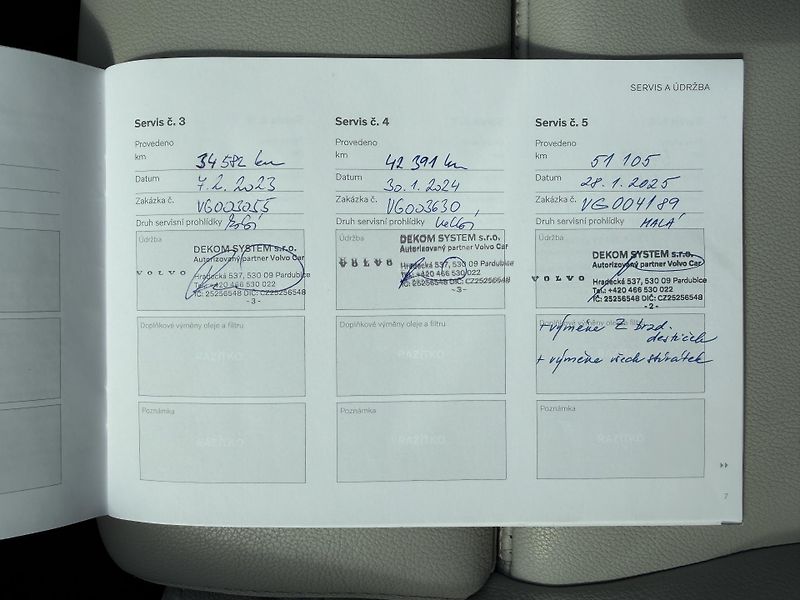 SERVIS A ÚDRŽBA
Servis č. 3
Provedeno
km 34 582 km
Datum 7. 2. 2023
Zakázka č. VG003055
Druh servisní prohlídky
Údržba
VOLVO
DEKOM SYSTEM s.r.o.
Autorizovaný partner Volvo Car
Hradecká 537, 530 09 Pardubice
Tel.: +420 466 530 022
IČ: 25256548 DIČ: CZ25256548
- 3 -
Doplňkové výměny oleje a filtru
RAZÍTKO
Poznámka
RAZÍTKO
Servis č. 4
Provedeno
km 42 391 km
Datum 30. 1. 2024
Zakázka č. VG003630
Druh servisní prohlídky velká
Údržba
VOLVO
DEKOM SYSTEM s.r.o.
Autorizovaný partner Volvo Car
Hradecká 537, 530 09 Pardubice
Tel.: +420 466 530 022
IČ: 25256548 DIČ: CZ25256548
- 3 -
Doplňkové výměny oleje a filtru
RAZÍTKO
Poznámka
RAZÍTKO
Servis č. 5
Provedeno
km 51 105
Datum 28. 1. 2025
Zakázka č. VG004189
Druh servisní prohlídky MALÁ
Údržba
VOLVO
DEKOM SYSTEM s.r.o.
Autorizovaný partner Volvo Car
Hradecká 537, 530 09 Pardubice
Tel.: +420 466 530 022
IČ: 25256548 DIČ: CZ25256548
- 2 -
Doplňkové výměny oleje a filtru
+ výměna Z brzd.
destiček
+ výměna všech stěrátek
Poznámka
RAZÍTKO
7